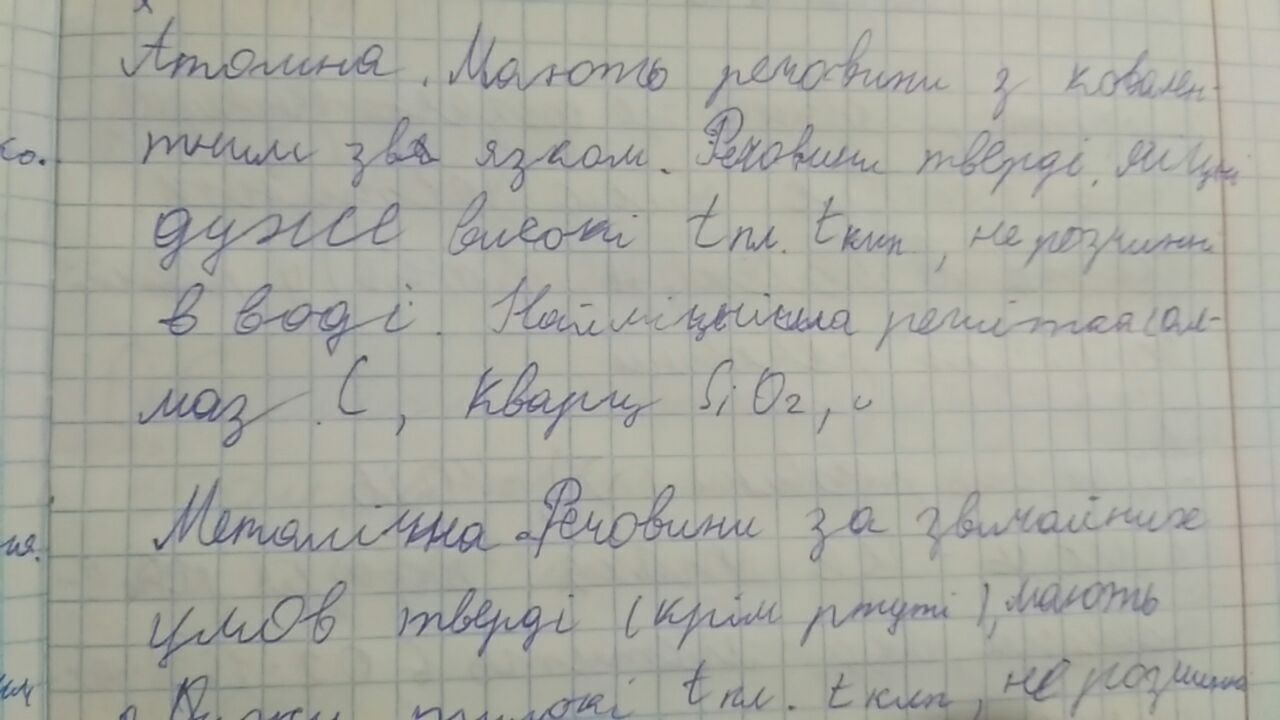 Атомна. Мають речовини з ковален-
тним зв язком. Речовини тверді, міцні
со.
дуже високі t пл. t кип, не розчинні
в воді. Найміцніша решітка (ал-
маз C, кварц SiO2,
Металічна. Речовини за звичайних
ия.
умов тверді (крім ртуті), мають
t пл. t кип, не розчинні